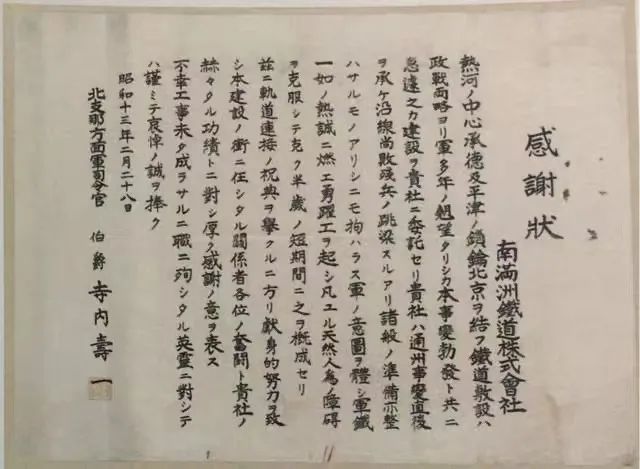 感謝狀
南滿洲鐵道株式會社
熱河ノ中心承德及平津ノ鎖鑰北京ヲ結フ鐵道敷設ハ
政戰兩略ヨリ軍多年ノ翹望タリシカ本事變勃發ト共ニ
急遽之カ建設ヲ貴社ニ委託セリ貴社ハ通州事變直後
ヲ承ケ沿線尚敗殘兵ノ跳梁スルアリ諸般ノ準備亦整
ハサルモノアリシニモ拘ハラス軍ノ意圖ヲ體シ軍鐵
一如ノ熱誠ニ燃エ勇躍工ヲ起シ凡ユル天然人為ノ障碍
ヲ克服シテ克ク半歲ノ短期間ニ之ヲ概成セリ
茲ニ軌道連接ノ祝典ヲ擧クルニ方リ獻身的努力ヲ致
シ本建設ノ衝ニ任シタル關係者各位ノ奮鬪ト貴社ノ
赫々タル功績トニ對シ厚ク感謝ノ意ヲ表ス
不幸工事未タ成ラサルニ職ニ殉シタル英靈ニ對シテ
ハ謹ミテ哀悼ノ誠ヲ捧ク
昭和十三年二月二十八日
北支那方面軍司令官 伯爵 寺內壽一